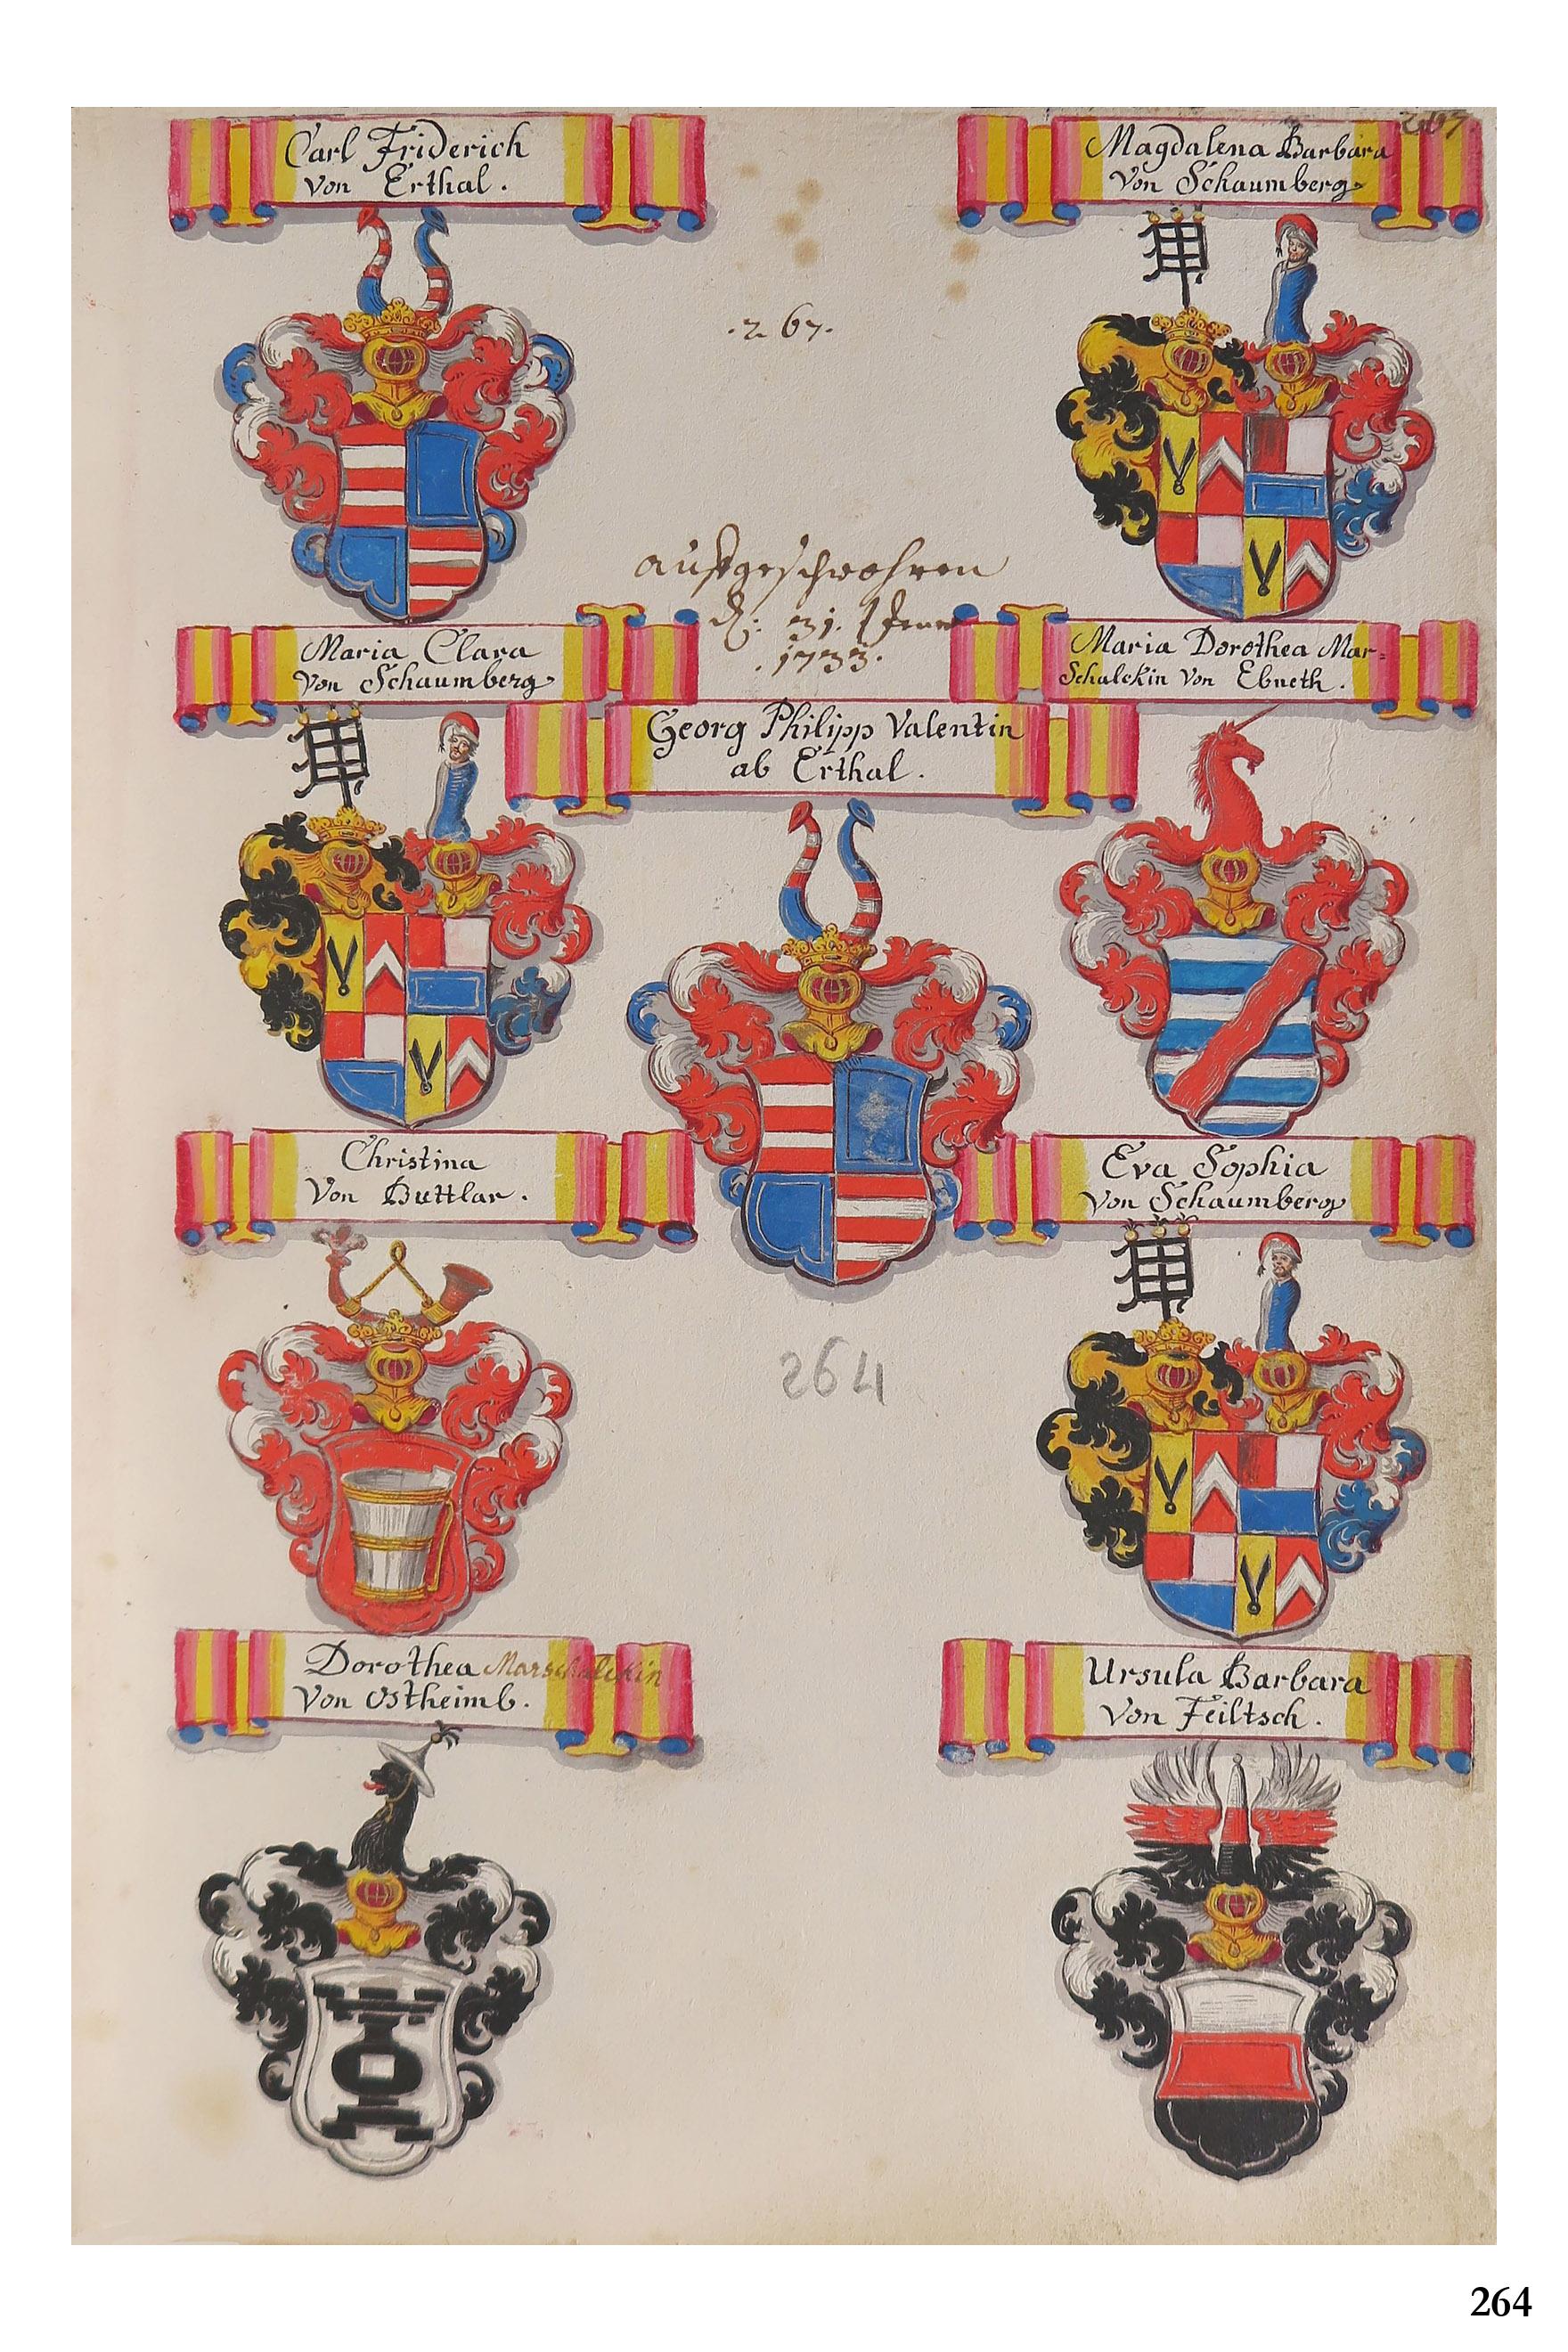 Carl Friderich
von Erthal.
Magdalena Barbara
Von Schaumberg
267.
.267.
auffgeschwohren
d: 31.
.1733.
Maria Clara
Von Schaumberg
Maria Dorothea Mar=
Schalckin Von Ebneth.
Georg Philipp Valentin
ab Erthal.
Christina
Von Buttlar.
Eva Sophia
Von Schaumberg
264
Dorothea Marschalckin
Von Ostheimb.
Ursula Barbara
Von Feiltsch.
264